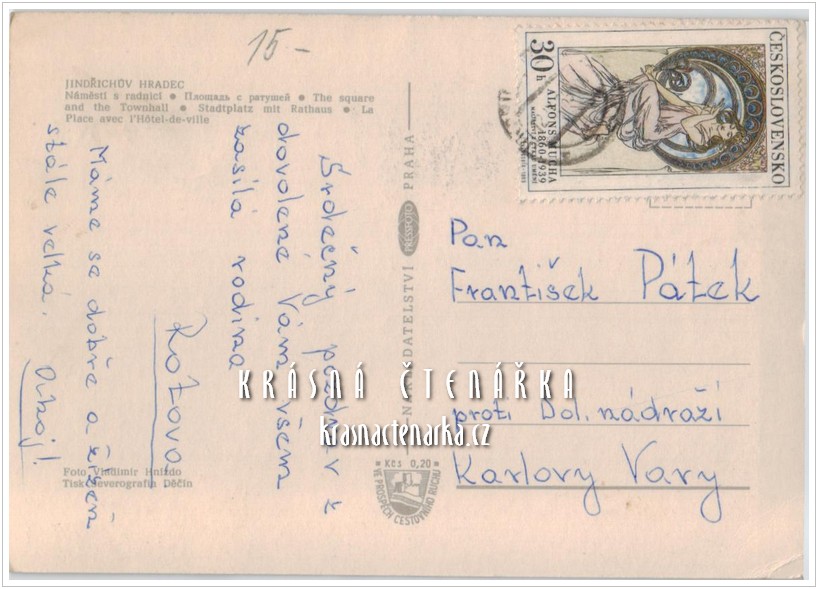 15-
JINDŘICHŮV HRADEC
Náměstí s radnicí ● Площадь с ратушей ● The square
and the Townhall ● Stadtplatz mit Rathaus ● La
Place avec l'Hôtel-de-ville
Srdečný pozdrav z
dovolené Vám všem
zasílá rodina
Kotova
Máme se dobře a
stále velká.
Ahoj!
Foto Vladimír Hnízdo
Tisk Severografia Děčín
NAKLADATELSTVÍ PRESSFOTO PRAHA
Kčs 0,20
VE PROSPĚCH CESTOVNÍHO RUCHU
ČESKOSLOVENSKO
30 h
ALFONS MUCHA
1860-1939
Pan
František Pátek
proti Dol. nádraží
Karlovy Vary
KRÁSNÁ ČTENÁŘKA
krasnactenarka.cz